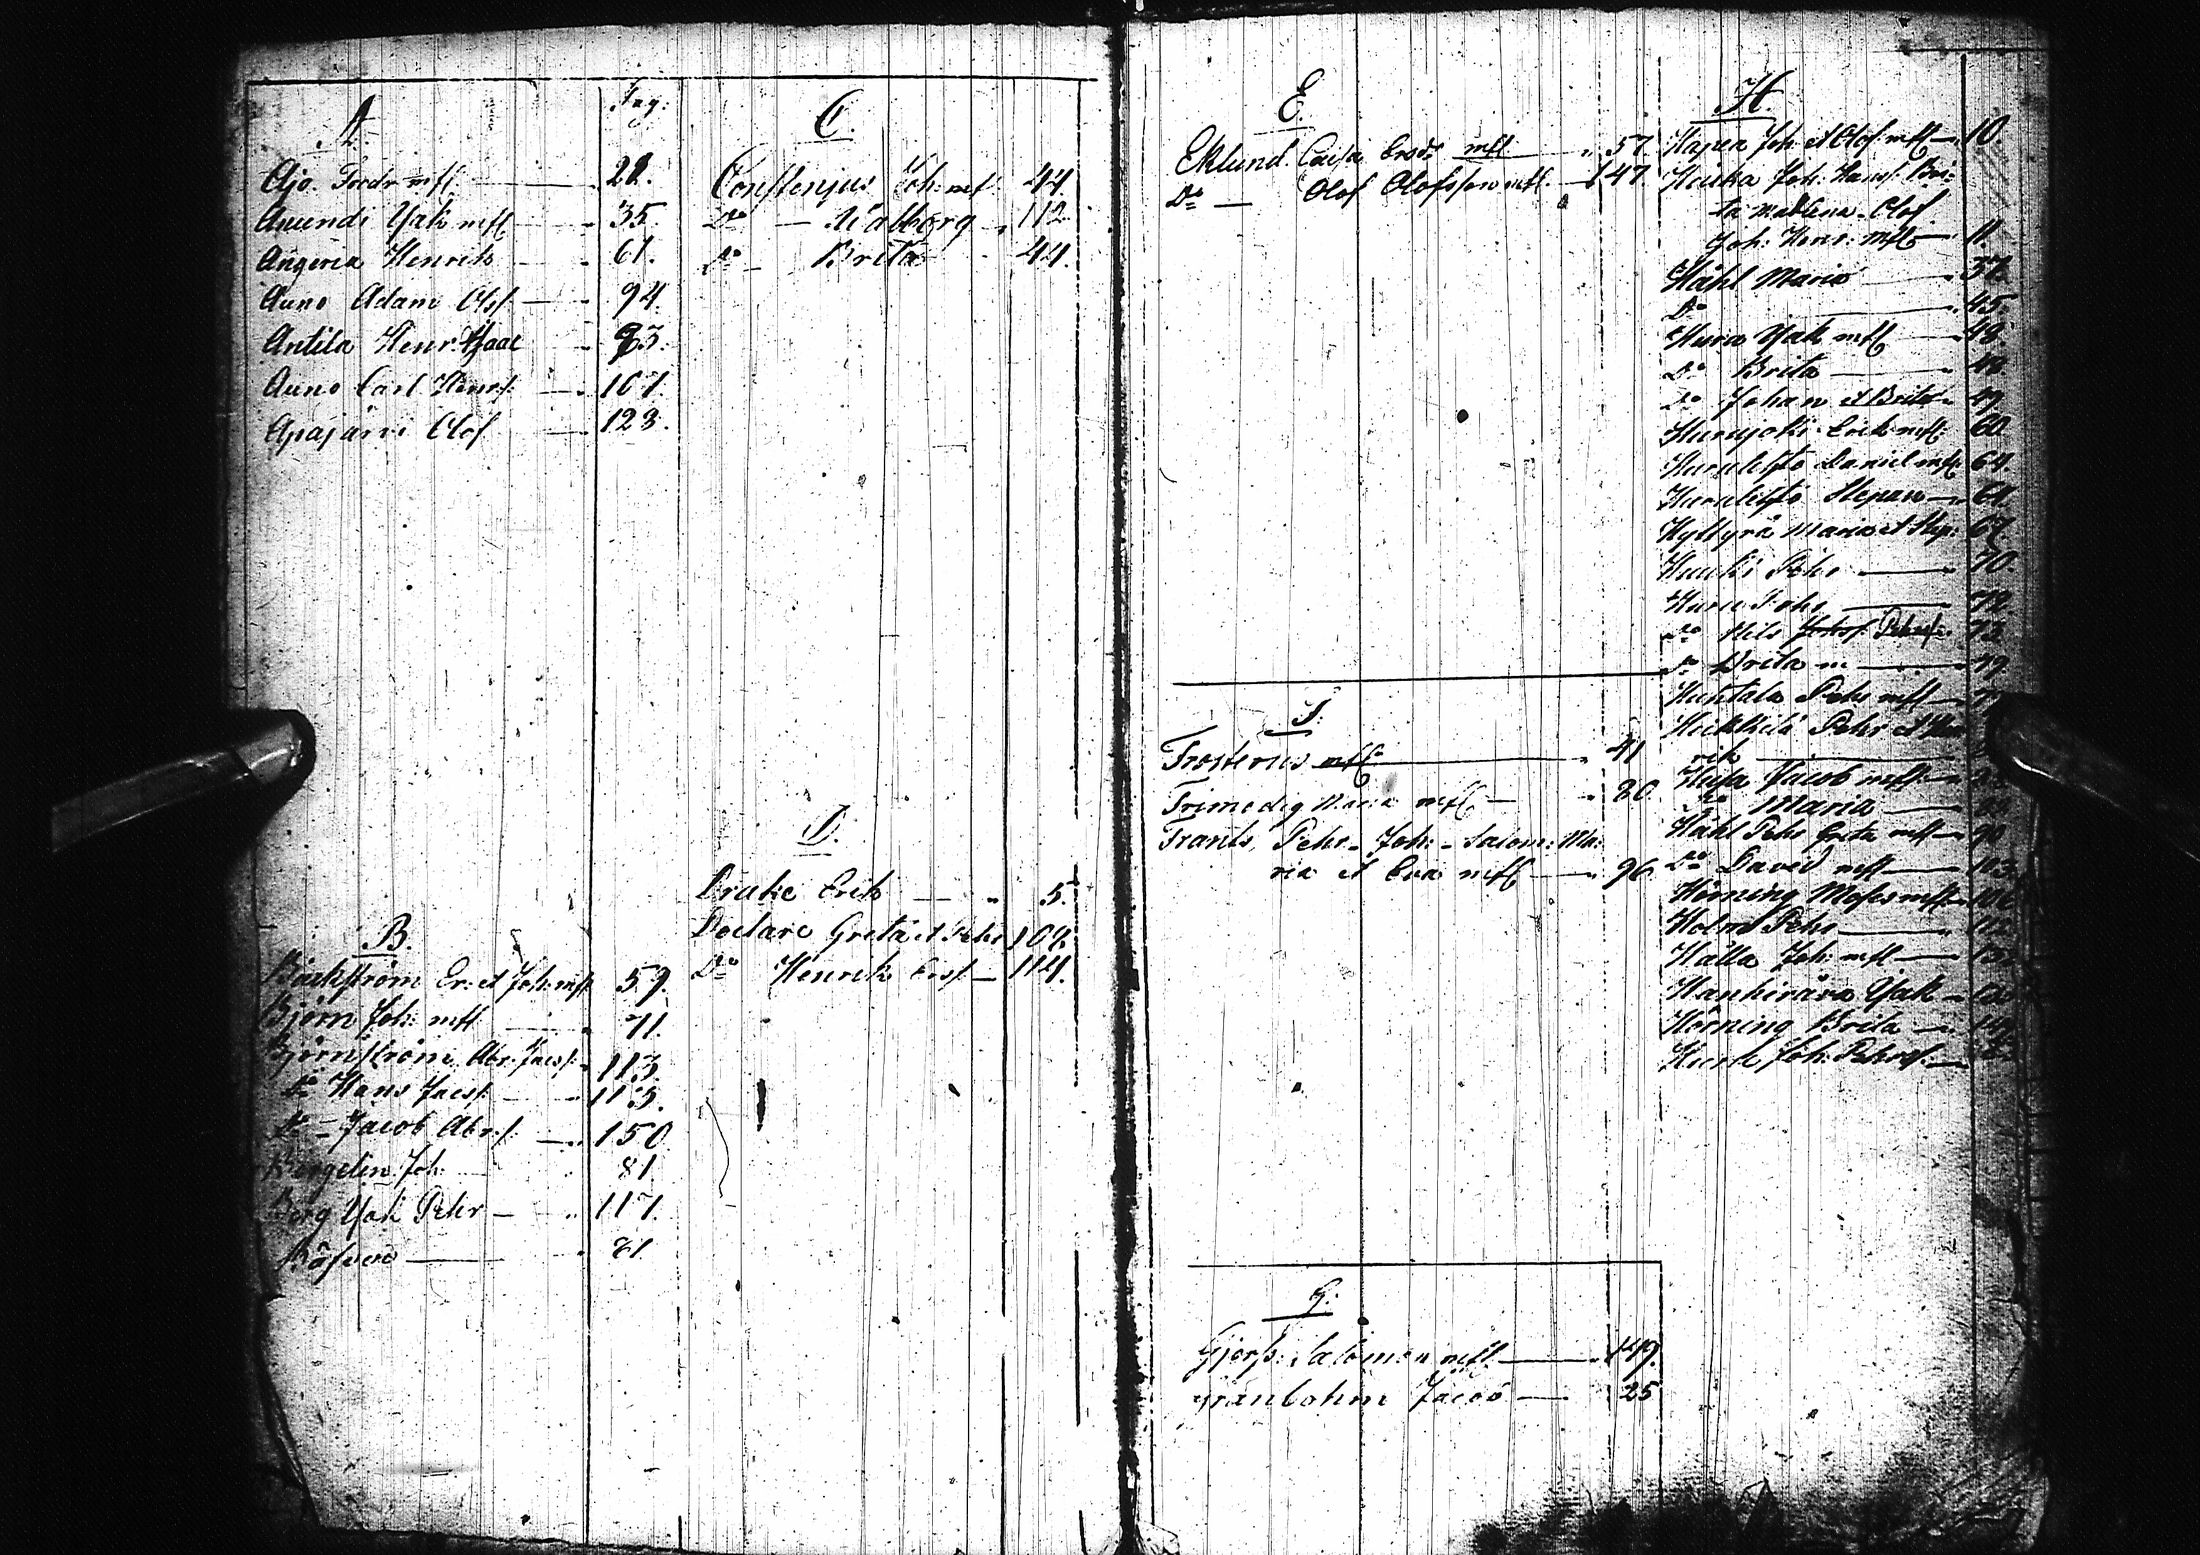 A. Pag:
Ajo. Fredr mfl. 22.
Anundi Isak mfl 35.
Angeria Henrik 61.
Auno Adam Olsf. 94.
Antila Henr. Isaac 93.
Auno Carl Henrs. 107.
Apajärvi Olof 123.
B.
Björkström Er: et Joh: mfl 59.
Björn Joh: mfl 71.
Björnström Abr: Jacsf: 113.
Do Hans Jacsf. 113.
Do Jacob Abr:s. 150
Bergelin Joh: 81.
Berg Isak Pehr 117.
Bäfver 61
C.
Constenjus Joh: mfl 44.
Do Walborg 112
Do Brita 44.
D.
Drake Erik 5.
Doctare Greta et Pehr 104.
Do Henrik Ersf. 114.
E.
Eklund Caisa Ersd: mfl 57.
Do Olof Olofsson mfl. 147.
F.
Frosterus mfl 41
Frimodig Maria mfl. 80
Frants, Pehr. Joh: Salom: Ma:
ria et Eva mfl 96.
G.
Gjers: Salomon mfl 149.
Granbohm Jacob 25
H.
Hajpea Joh et Olof mfl 10.
Heicka Joh: Hans: Bri:
ta Malena. Olof
Joh: Henr: mfl 11.
Håhl Maria 37.
Do 45.
Hura Isak mfl 48.
Do Brita 48.
Do Johan et Brita 49
Hurujoki Erik mfl: 60
Hurulehto Daniel mfl 64.
Hurulehto Stepan 64
Kyttyrä Maria et Step: 67.
Huuki Pehr 70.
Huru Pehr 72
Do Nils Johsf. Pehrsf: 73.
Do Brita m 79.
Huhtala Pehr mfl
Heikkilä Pehr et Hen
rik
Jacob mfl
Do Maria
Håhl Pehr Greta mfl 90.
Do David mfl 103
Hörning Moses mfl
Holm Pehr 112
Halla Joh: mfl
Hankivara Isak
Hörning Brita 149
Joh: Pehrsf.